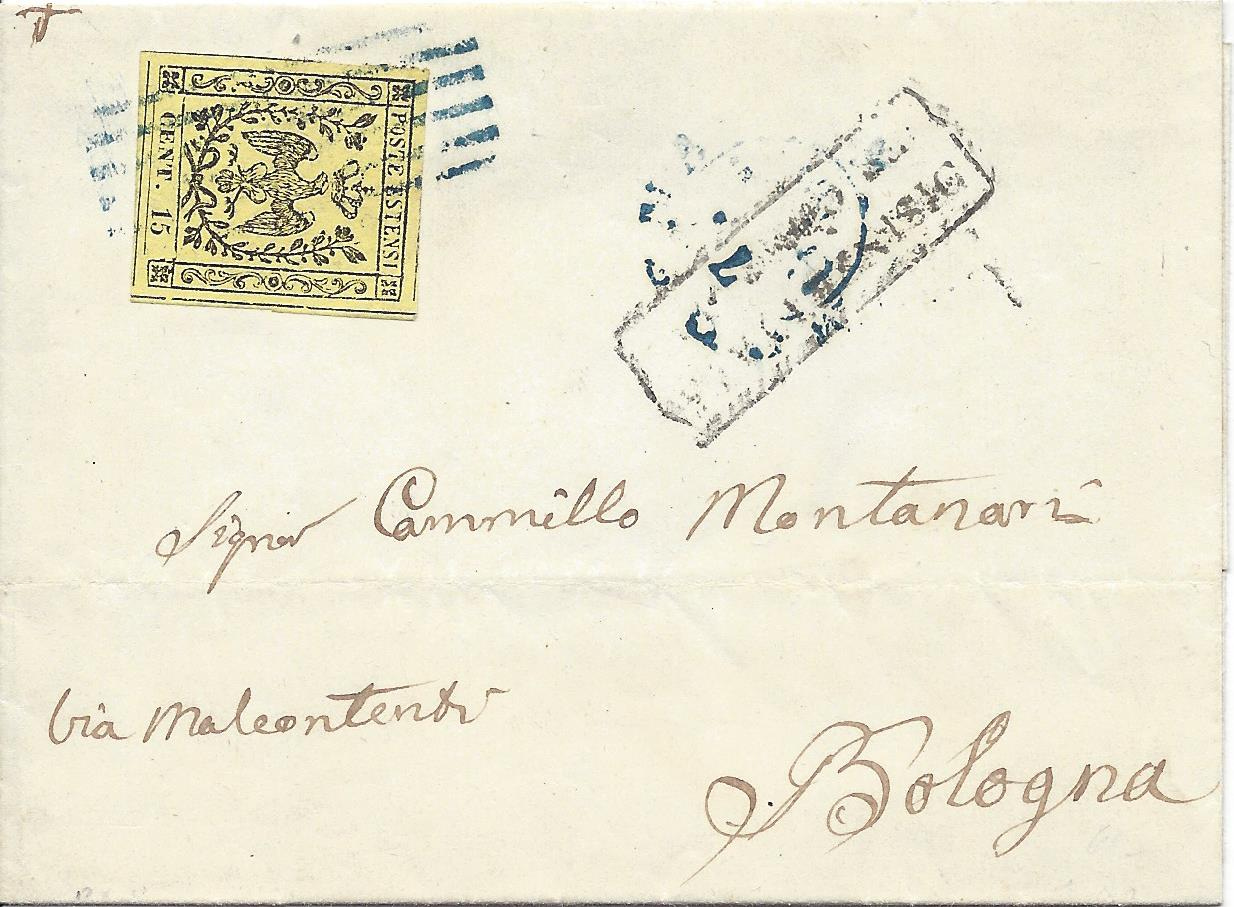 POSTE ESTENSI
CENT. 15
Signor Cammillo Montanari
Via Malcontenti
Bologna